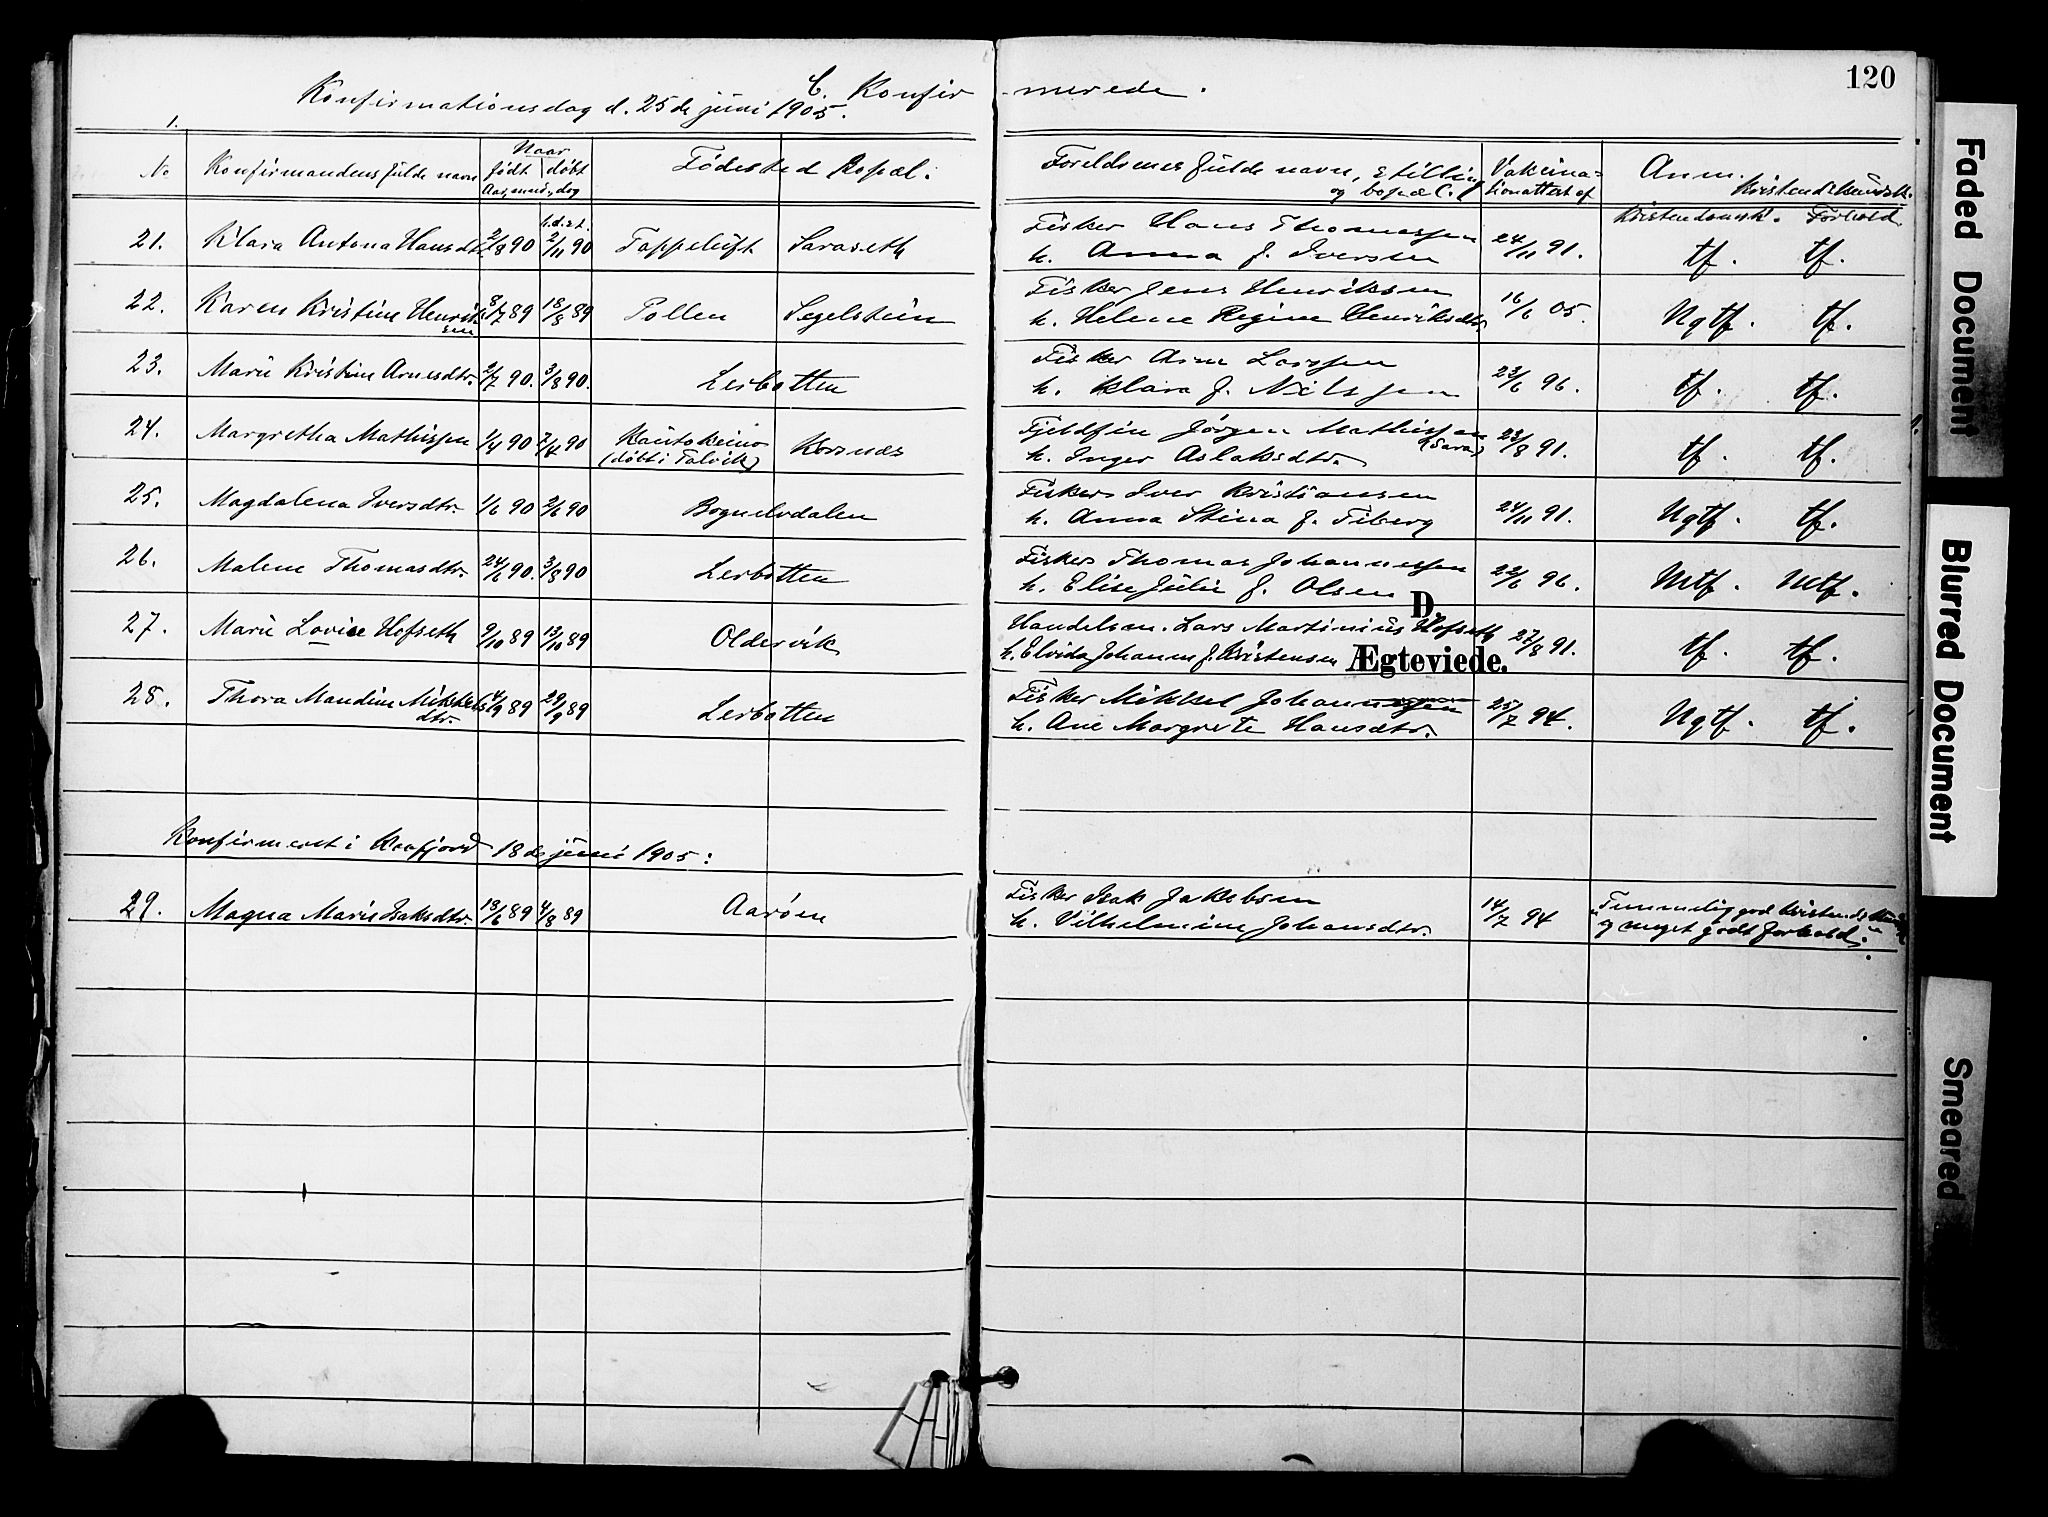 120
C. Konfirmerede.
Konfirmationsdag d. 25de juni 1905.
1.
No Konfirmandens fulde navn Naar født døbt Aar, mnd, dag Fødested Bopæl: Foreldrenes fulde navn, stilling og bopæl. Vakcinationsattest af Anm. Kristendskundsk.
Kristendomsk. Forhold
21. Klara Antona Hansdtr. 2/8 90 2/11 90 Tappeluft Saraseth Fisker Hans Thomassen
h. Anna f. Iversen 24/11 91. tf. tf.
22. Karen Kristine Henriksen 8/7 89 18/8 89 Pollen Segelstein Fisker Jens Henriksen
h. Helene Regine Henriksdtr. 16/6 05. Ngtf. tf.
23. Marie Kristine Arnesdtr. 2/7 90. 3/8 90. Lerbotten Fisker Arne Larssen
h. Klara f. Nilssen 23/6 96. tf. tf.
24. Margretha Mathissen 1/4 90 7/4 90 Kautokeino (døbt i Talvik) Korsnæs Fjeldfin Jørgen Mathissen (Sara)
h. Inger Aslaksdtr. 23/8 91. tf. tf.
25. Magdalena Iversdtr. 1/6 90 2/6 90 Bognelvdalen Fisker Iver Kristiansen
h. Anna Stina f. Fiberg 24/11 91. Ngtf. tf.
26. Malene Thomasdtr. 24/6 90. 3/8 90 Lerbotten Fisker Thomas Johannessen
h. Elise Julie f. Olsen 22/6 96. Mtf. Mtf.
27. Marie Lovise Hofseth 9/10 89 13/10 89 Oldervik Handelsm. Lars Martinius Hofseth
h. Elvida Johanna f. Kristensen 27/8 91. tf. tf.
D.
Ægteviede.
28. Thora Mandine Mikkelsdtr. 4/9 89 29/9 89 Lerbotten Fisker Mikkel Johannessen
h. Ane Margrete Hansdtr. 25/7 94. Ngtf. tf.
Konfirmeret i Kaafjord 18de juni 1905:
29. Magna Marie Isaksdtr. 13/6 89 4/8 89 Aarøen Fisker Isak Jakobsen
h. Vilhelmine Johansdtr. 14/7 94 "Temmelig god kristendskundsk
og meget godt forhold."
Faded Document
Blurred Document
Smeared